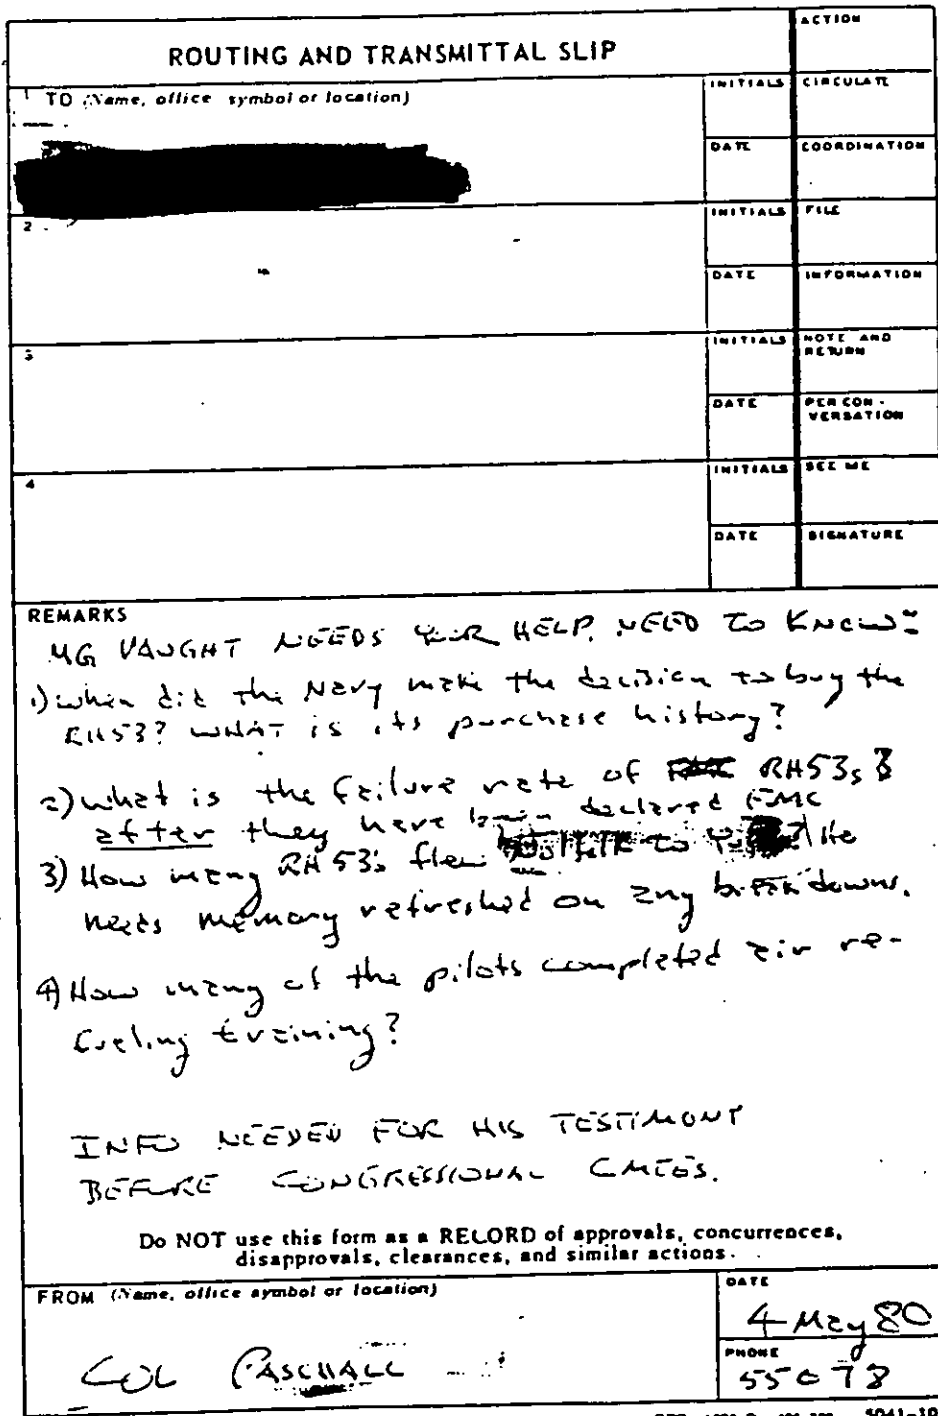 ACTION
ROUTING AND TRANSMITTAL SLIP
1 TO (Name, office symbol or location)
INITIALS
CIRCULATE
DATE
COORDINATION
2
INITIALS
FILE
DATE
INFORMATION
3
INITIALS
NOTE AND
RETURN
DATE
PER CON-
VERSATION
4
INITIALS
SEE ME
DATE
SIGNATURE
REMARKS
MG VAUGHT NEEDS YOUR HELP. NEED TO KNOW:
1) when did the Navy make the decision to buy the
RH53? WHAT is its purchase history?
2) what is the failure rate of RH53s
after they have been declared FMC
3) How many RH53s flew He
needs memory refreshed on any breakdowns.
4) How many of the pilots completed air re-
fueling training?
INFO NEEDED FOR HIS TESTIMONY
BEFORE CONGRESSIONAL CMTES.
Do NOT use this form as a RECORD of approvals, concurrences,
disapprovals, clearances, and similar actions.
FROM (Name, office symbol or location)
DATE
4 May 80
COL PASCHALL
PHONE
55078
5041-10